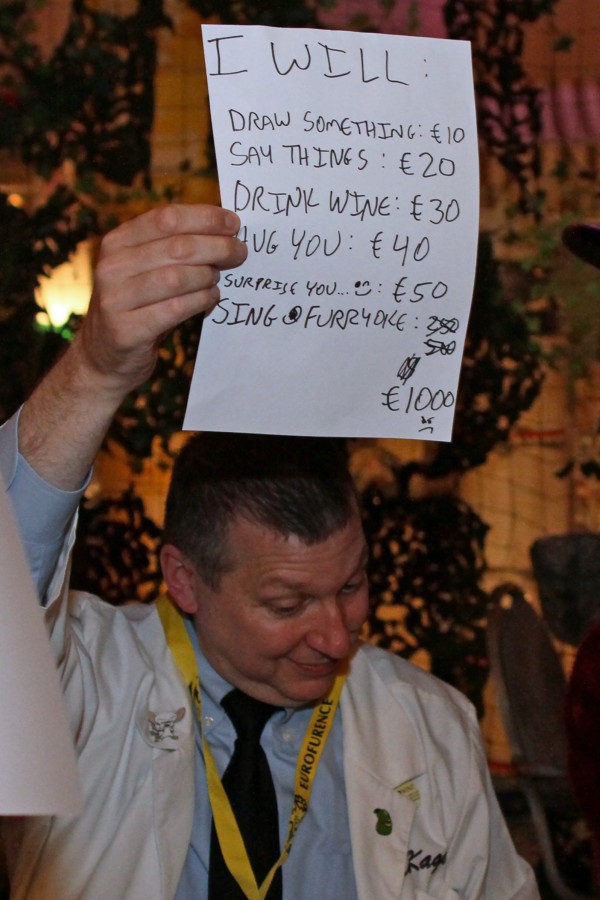 I WILL:
DRAW SOMETHING: €10
SAY THINGS: €20
DRINK WINE: €30
HUG YOU: €40
SURPRISE YOU... :€50
SING @ FURRYOKE: 250
500
€1000
EUROFURENCE